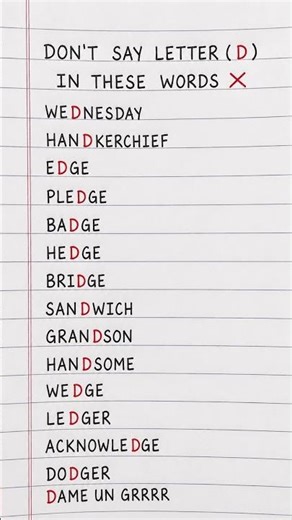 DON'T SAY LETTER (D)
IN THESE WORDS ❌
WEDNESDAY
HANDKERCHIEF
EDGE
PLEDGE
BADGE
HEDGE
BRIDGE
SANDWICH
GRANDSON
HANDSOME
WEDGE
LEDGER
ACKNOWLEDGE
DODGER
DAME UN GRRRR